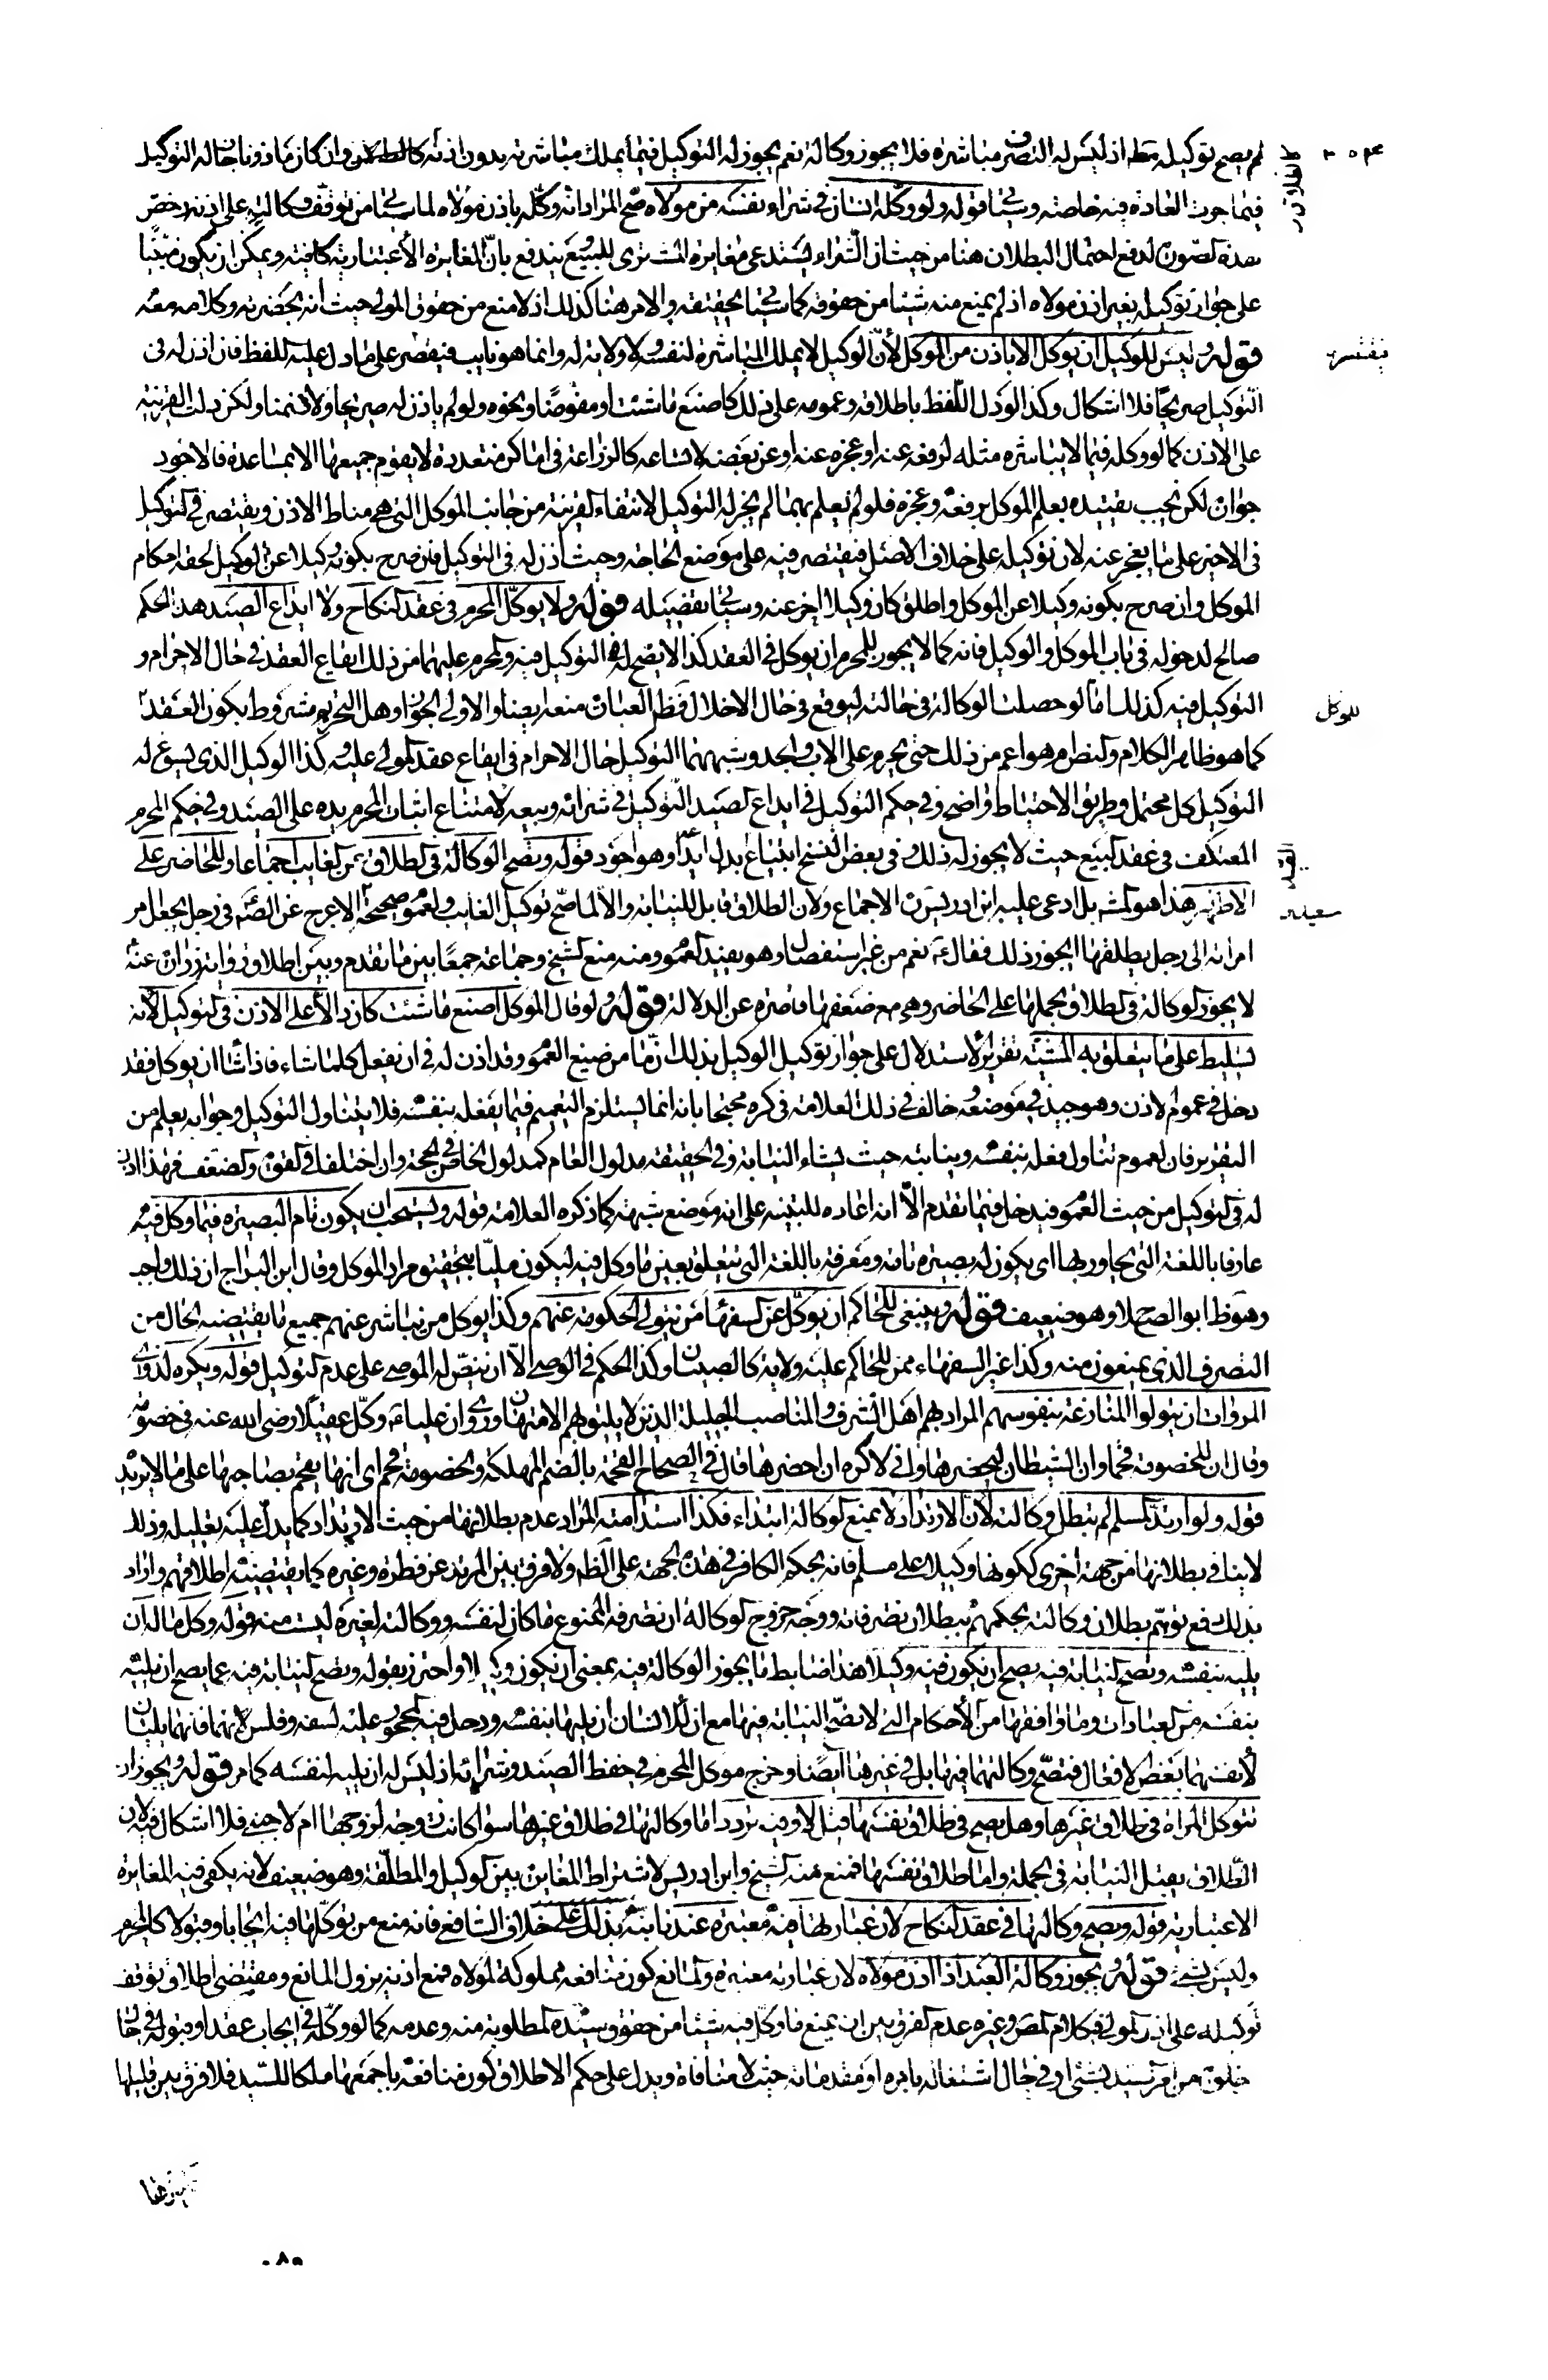 لم يصح توكيله مط اذ ليس له التصرف مباشرة فلا يجوز وكالة نعم يجوز له التوكيل فيما يملك مباشرته بدون اذنه كالطلاق وان كان ماذونا جاز له التوكيل
فيما جرت العادة فيه خاصته وسيئاتى قوله ولو وكله انسان فى شراء نفسه من مولاه صح المراد انه وكله باذن مولاه لما سياتى من توقف وكالته على اذنه وخص
هذه الصورة لدفع احتمال البطلان هنا من حيث ان الشراء يستدعى مغايرة المشترى للمبيع ويندفع بان المغايرة الاعتبارية كافية ويمكن ان يكون مبنيا
على جواز توكيله بغير اذن مولاه اذ لم يمنع منه شيئا من حقوقه كما سياتى تحقيقه والامر هنا كذلك اذ لا منع من حقوق المولى حيث انه بحضرته وكلامه معه
قوله وليس للوكيل ان يوكل الا باذن من الموكل لان الوكيل لا يملك المباشرة لنفسه ولا ولاية له وانما هو نايب فيقتصر على ما دل عليه اللفظ فان اذن له فى
التوكيل صريحا فلا اشكال وكذا لو دل اللفظ باطلاقه وعمومه على ذلك كاصنع ما شئت او مفوضا ونحوه ولو لم ياذن له صريحا ولا ضمنا ولكن دلت القرينة
على الاذن كما لو وكله فيما لا يباشره مثله لترفعه عنه او عجزه عنه او عن بعضه لاتساعه كالزراعة فى اماكن متعددة لا يقوم جميعها الا بمساعدة فالاجود
جوازه لكن يجب تقييده بعلم الموكل برفعته وعجزه فلو لم يعلم بهما لم يجز له التوكيل لانتفاء القرينة من جانب الموكل التى هى مناط الاذن ويقتصر فى التوكيل
فى الاخير على ما يعجز عنه لان توكيله على خلاف الاصل فيقتصر فيه على موضع الحاجة وحيث اذن له فى التوكيل فان صرح بكونه وكيلا عن الوكيل لحقه احكام
الموكل وان صرح بكونه وكيلا عن الموكل او اطلق كان وكيلا اخر عنه وسياتى تفصيله قوله ولا يوكل المحرم فى عقد النكاح ولا ابتياع الصيد هذا الحكم
صالح لدخوله فى باب الموكل والوكيل فانه كما لا يجوز للمحرم ان يوكل فى العقد كذا لا يصح له التوكيل فيه والمحرم عليهما من ذلك ايقاع العقد فى حال الاحرام و
التوكيل فيه كذلك اما لو حصلت الوكالة فى حالته ليوقع فى حال الاحلال فظ العبارة منعه ايضا والاولى الجواز وهل التحريم مشروط بكون العقد
كما هو ظاهر الكلام والنص ام هو اعم من ذلك حتى يحرم على الاب والجد وشبههما التوكيل حال الاحرام فى ايقاع عقد المولى عليه وكذا الوكيل الذى يسوغ له
التوكيل كل محتمل وطريق الاحتياط واضح وفى حكم التوكيل فى ابتياع الصيد التوكيل فى شرائه وبيعه لامتناع اثبات المحرم يده على الصيد وفى حكم المحرم
المعتكف فى عقد البيع حيث لا يجوز له ذلك وفى بعض النسخ ابتياع بدل ايداع وهو اجود قوله وتصح الوكالة فى الطلاق عن الغايب اجماعا وللحاضر على
الاظهر هذا هو المشه بل ادعى عليه ابن ادريس الاجماع ولان الطلاق قابل للنيابة والا لما صح توكيل الغايب ولعموم صحيحة الاعرج عن الص ع فى رجل يجعل امر
امراته الى رجل يطلقها ايجوز ذلك فقال ع نعم من غير استفصال وهو يفيد العموم ومنه منع الشيخ وجماعة جمعا بين ما تقدم وبين اطلاق رواية زرارة عنه
لا يجوز الوكالة فى الطلاق بحملها على الحاضر وهى مع ضعفها قاصرة عن الدلالة قوله ولو قال الموكل اصنع ما شئت كان دالا على الاذن فى التوكيل لانه
تسليط على ما يتعلق به المشية تقرير الاستدلال على جواز توكيل الوكيل بذلك ان ما من صيغ العموم وقد اذن له فى ان يفعل كلما شاء فاذا شاء ان يوكل فقد
دخل فى عموم الاذن وهو جيد فى موضعه وخالف فى ذلك العلامة فى كره محتجا بانه انما يستلزم التعميم فيما يفعله بنفسه فلا يتناول التوكيل وجوابه يعلم من
التقرير فان العموم تناول فعله بنفسه وبنائبه حيث يشاء النيابة وفى الحقيقة مدلول العام كمدلول الخاص فى الحجة وان اختلفا فى القوة والضعف فهذا اذن
له فى التوكيل من حيث العموم فيدخل فيما تقدم الا انه اعاده للتنبيه على انه موضع شبهة كما ذكره العلامة قوله ويستحب ان يكون تام البصيرة فيما وكل فيه
عارفا باللغة التى يحاور بها اى يكون له بصيرة تامة ومعرفة باللغة التى تتعلق بعين ما وكل فيه ليكون مليا بتحقيق مراد الموكل وقال ابن البراج ان ذلك واجب
وهو ظ ابو الصلاح وهو ضعيف قوله وينبغى للحاكم ان يوكل عن السفهاء من يتولى الحكومة عنهم وكذا يوكل من يباشر عنهم جميع ما يقتضيه الحال من
التصرف الذى يمنعون منه وكذا غير السفهاء ممن للحاكم عليه ولاية كالصبيان وكذا الحكم فى الوصى الا ان ينص له الموصى على عدم التوكيل قوله ويكره لذوى
المروات ان يتولوا المنازعة بنفوسهم المراد بهم اهل الشرف والمناصب الجليلة الذين لا يليق بهم الامتهان وروى ان عليا ع وكل عقيلا رضى الله عنه فى خصومة
وقال ان للخصومة قحما وان الشيطان ليحضرها وانى لاكره ان احضرها قال فى الصحاح القحمة بالضم المهلكة وللخصومة قحم اى انها تقحم بصاحبها على ما لا يريد
قوله ولو ارتد المسلم لم تبطل وكالته لان الارتداد لا يمنع الوكالة ابتداء فكذا استدامة المراد عدم بطلانها من حيث الارتداد كما يدل عليه تعليله وذلك
لا ينافى بطلانها من جهة اخرى ككونها وكيلا على مسلم فانه بحكم الكافر فى هذه الجهة على الظ ولا فرق بين المرتد عن فطرة وغيره كما يقتضيه اطلاقهم واراد
بذلك دفع توهم بطلان وكالته بحكمهم ببطلان تصرفاته ووجه خروج الوكالة ان تصرفه الممنوع ما كان لنفسه ووكالته لغيره ليست منه قوله وكل ما له ان
يليه بنفسه وتصح النيابة فيه يصح ان يكون فيه وكيلا هذا ضابط ما يجوز الوكالة فيه بمعنى ان يكون وكيلا واحترز بقوله وتصح النيابة فيه عما يصح ان يليه
بنفسه من العبادات وما وافقها من الاحكام التى لا تصح النيابة فيها مع ان للانسان ان يليها بنفسه ودخل فيه المحجور عليه لسفه وفلس لانهما يليان
لانفسهما بعض الافعال فتصح وكالتهما فيها بل فى غيرها ايضا وخرج موكل المحرم فى حفظ الصيد وشرائه اذ ليس له ان يليه لنفسه كما مر قوله ويجوز ان
تتوكل المراة فى طلاق غيرها وهل يصح فى طلاق نفسها قيل لا وفيه تردد اما وكالتها فى طلاق غيرها سواء كانت زوجة لزوجها ام لاجنبى فلا اشكال فيه لان
الطلاق يقبل النيابة فى الجملة واما طلاق نفسها فمنع منه الشيخ وابن ادريس لاشتراط المغايرة بين الوكيل والمطلقة وهو ضعيف لانه يكفى فيه المغايرة
الاعتبارية قوله ويصح وكالتها فى عقد النكاح لان عبارتها فيه معتبرة عندنا نبه بذلك على خلاف الشافعى فانه منع من توكلها فيه ايجابا وقبولا كالمحرم
وليس بشئ قوله ويجوز وكالة العبد اذا اذن مولاه لان عبارته معتبرة والمانع كون منافعه مملوكة لمولاه فمع اذنه يزول المانع ومقتضى اطلاق توقف
توكيله على اذن المولى فى كلام المص وغيره عدم الفرق بين ان يمنع ما وكل فيه شيئا من حقوق سيده المطلوبة منه وعدمه كما لو وكله فى ايجاب عقد او قبوله فى حال
خلوه من امر سيده بشئ او فى حال اشتغاله بامره او مقدماته حيث لا منافاة ويدل على حكم الاطلاق كون منافعه باجمعها ملكا للسيد فلا فرق بين قليلها
للموكل